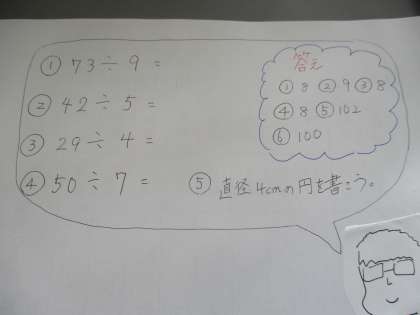 ① 73 ÷ 9 =
② 42 ÷ 5 =
③ 29 ÷ 4 =
④ 50 ÷ 7 =
⑤ 直径4cmの円を書こう。
答え
① 8 ② 9 ③ 8
④ 8 ⑤ 102
⑥ 100